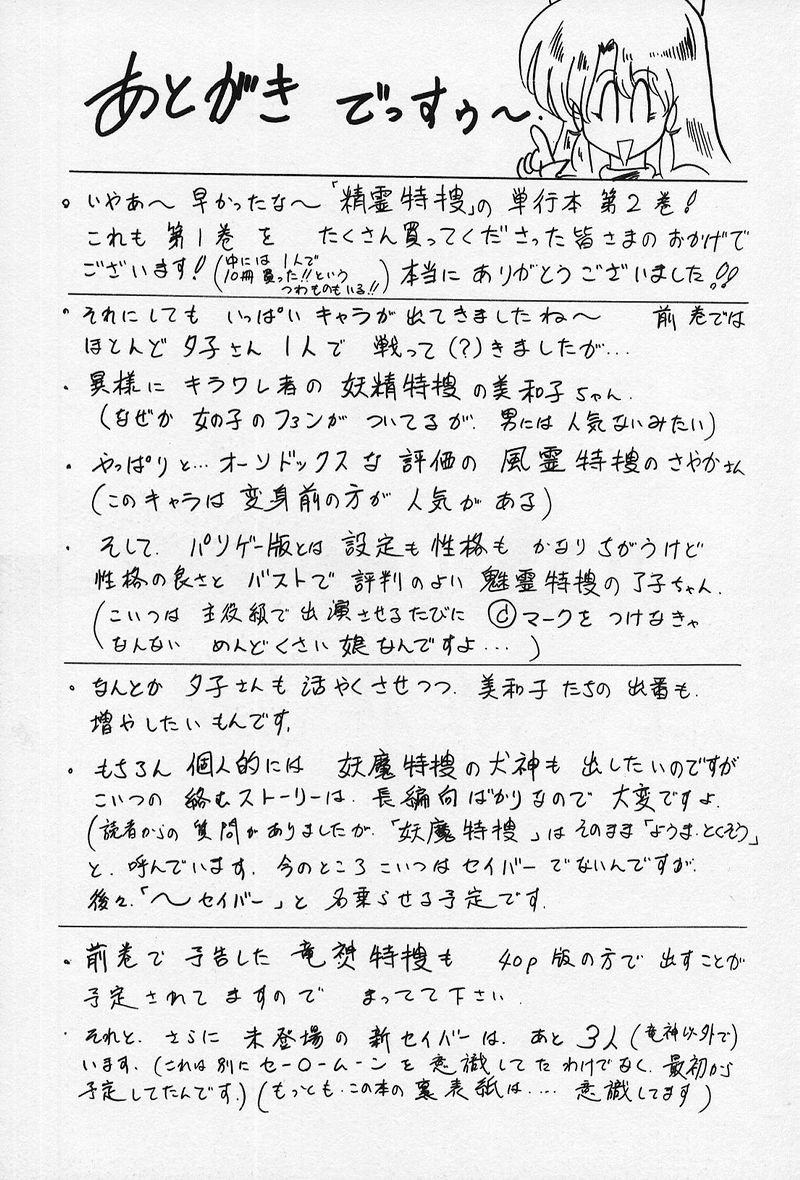 あとがき でっすゥ〜.
・いやあ〜 早かったな〜「精霊特捜」の 単行本 第2巻!
これも 第1巻 を たくさん買ってくださった皆さまの おかげで
ございます! (中には 1人で
10冊 買った!!という
つわものもいる!!) 本当に ありがとうございました!!
・それにしても いっぱい キャラが 出てきましたね〜 前巻では
ほとんど 夕子さん 1人で 戦って(?)きましたが…
・異様に キラワレ者の 妖精特捜 の美和子ちゃん.
(なぜか 女の子のファンが ついてるが. 男には 人気ないみたい)
・やっぱりと… オーソドックスな 評価の 風霊特捜のさやかさん
(このキャラは 変身前の方が 人気が ある)
・そして. パソゲー版とは 設定も 性格も かなりちがうけど
性格の良さと バストで 評判のよい 魅霊特捜の了子ちゃん.
(こいつは 主役級で出演させるたびに ⓒマークを つけなきゃ
なんない めんどくさい 娘なんですよ…)
・なんとか 夕子さんも 活やくさせつつ. 美和子たちの 出番も.
増やしたい もんです.
・もちろん 個人的には 妖魔特捜の犬神も 出したいのですが
こいつの 絡むストーリーは. 長編向ばかりなので 大変ですよ.
(読者からの 質問がありましたが.「妖魔特捜」は そのまま「ようま・とくそう」
と. 呼んでいます. 今のところ こいつは セイバー でないんですが.
後々.「〜セイバー」と 名乗らせる予定です.
・前巻で 予告した 竜神特捜も 40p 版の方で 出すことが
予定されて ますので まってて下さい.
・それと. さらに 未登場の 新セイバーは. あと 3人(竜神以外で)
います. (これは 別に セーロームーン を 意識してた わけでなく. 最初から
予定してたんです.) (もっとも. この本の 裏表紙は.… 意識してます)